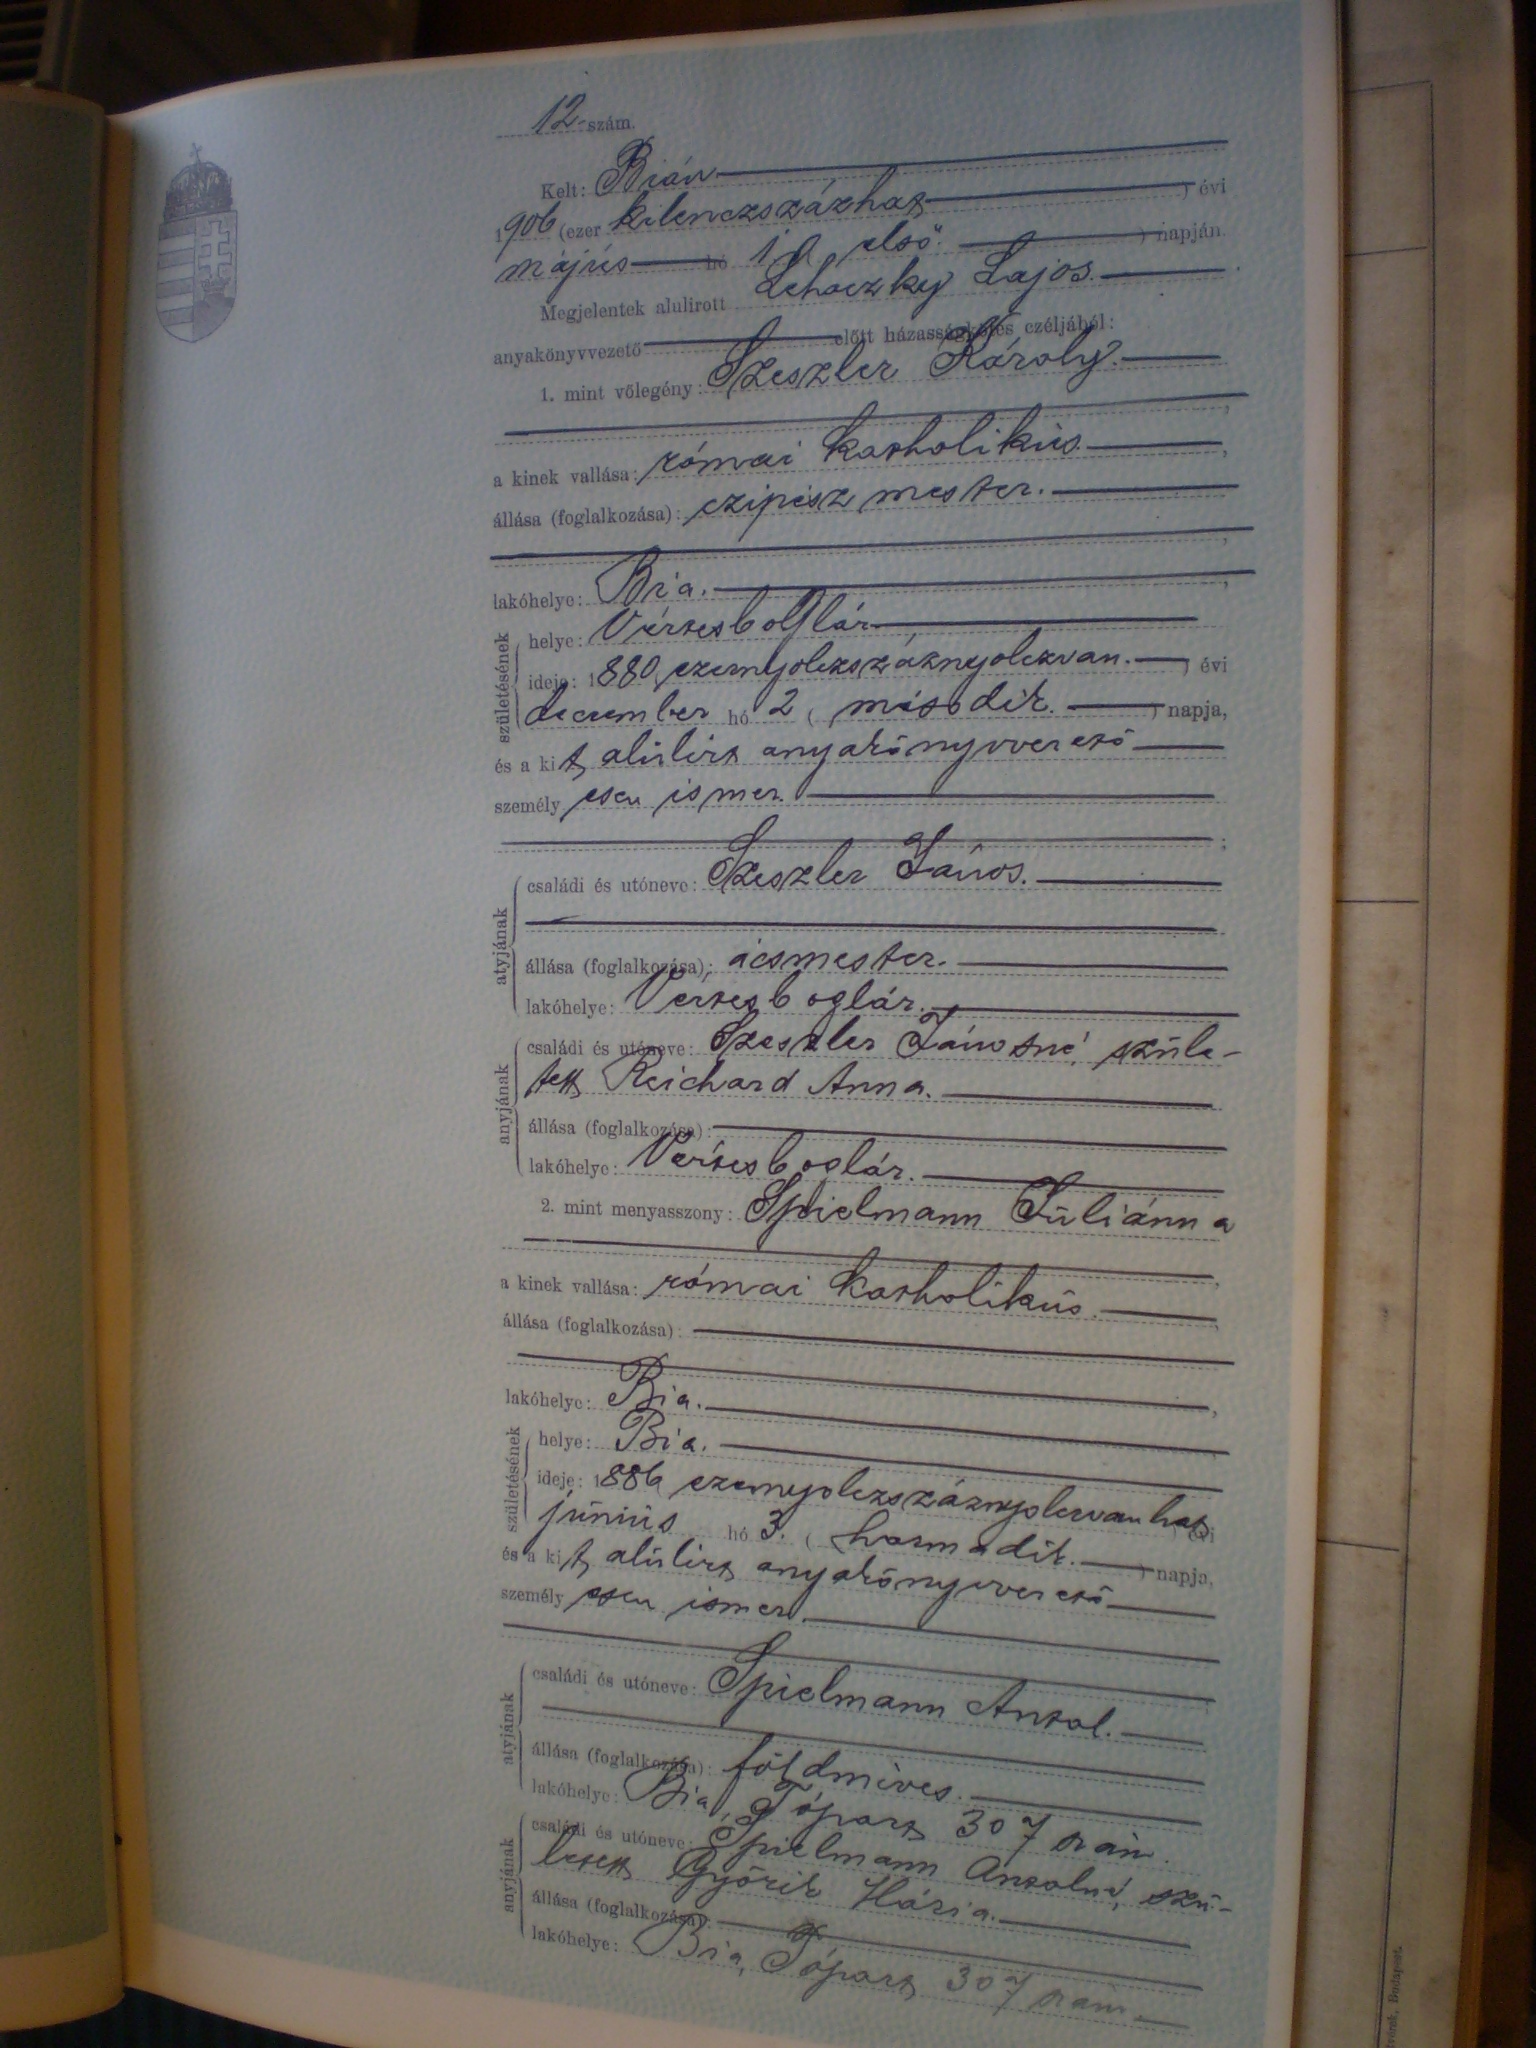 12. szám.
Kelt: Bián
1906 (ezer kilenczszázhat) évi
május hó 1 (első.) napján.
Megjelentek alulirott Lehoczky Lajos.
anyakönyvvezető előtt házasságkötés czéljából:
1. mint vőlegény: Szeszler Károly.
a kinek vallása: római katholikus.
állása (foglalkozása): czipész mester.
lakóhelye: Bia.
születésének
helye: Vértesboglár
ideje: 1880 ezernyolczszáznyolczvan. évi
december hó 2 (második.) napja,
és a kit alulirt anyakönyvvezető
személyesen ismer.
atyjának
családi és utóneve: Szeszler János.
állása (foglalkozása): ácsmester.
lakóhelye: Vértesboglár.
anyjának
családi és utóneve: Szeszler Jánosné, szüle-
tett Reichard Anna.
állása (foglalkozása):
lakóhelye: Vértesboglár.
2. mint menyasszony: Spielmann Juliánna
a kinek vallása: római katholikus.
állása (foglalkozása):
lakóhelye: Bia.
születésének
helye: Bia.
ideje: 1886 ezernyolczszáznyolczvanhat évi
június hó 3. (harmadik.) napja,
és a kit alulirt anyakönyvvezető
személyesen ismer.
atyjának
családi és utóneve: Spielmann Antal.
állása (foglalkozása): földmives.
lakóhelye: Bia, Tópart 307 szám.
anyjának
családi és utóneve: Spielmann Antalné, szü-
letett Győrik Mária.
állása (foglalkozása):
lakóhelye: Bia, Tópart 307 szám.
Budapest.